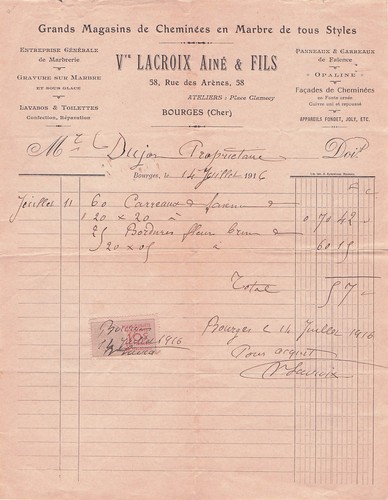 Grands Magasins de Cheminées en Marbre de tous Styles
ENTREPRISE GÉNÉRALE
de Marbrerie
GRAVURE SUR MARBRE
ET SOUS GLACE
LAVABOS & TOILETTES
Confection, Réparation
Vve LACROIX AINÉ & FILS
58, Rue des Arènes, 58
ATELIERS : Place Clamecy
BOURGES (Cher)
PANNEAUX & CARREAUX
de Faïence
OPALINE
Façades de Cheminées
en Fonte ornée
Cuivre uni et repoussé
APPAREILS FONDET, JOLY, ETC.
Mr Dujon Propriétaire Doit
Bourges, le 14 Juillet 1916
F c
Juillet 11 60 Carreaux de faïence
20 x 20 à 0 70 42
25 Bordures fleurs
20 x 05 à 60 15
Total 57
Bourges le 14 Juillet 1916
Pour acquit
Vve Lacroix
Bourges
14 Juillet 1916
10c
Lacroix